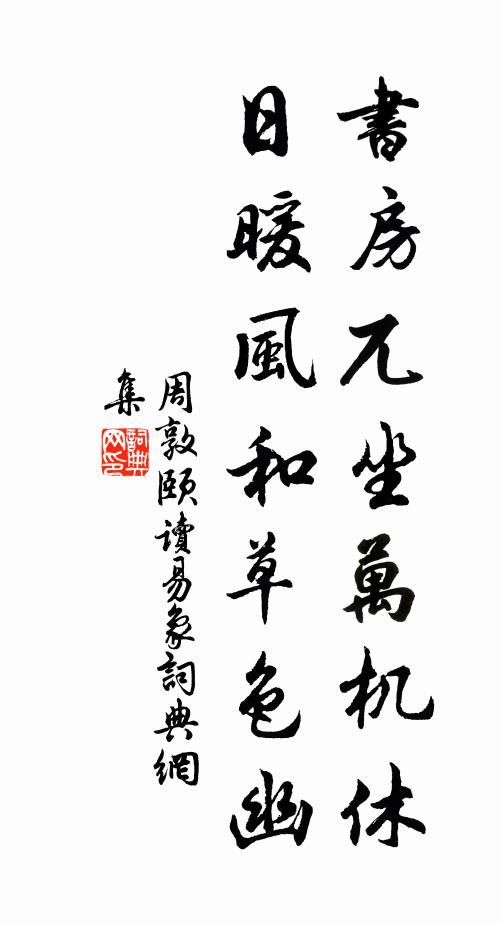 書房兀坐萬机休
日暖風和草色幽
周敦頤讀易象詞典網
集
詞典
网印